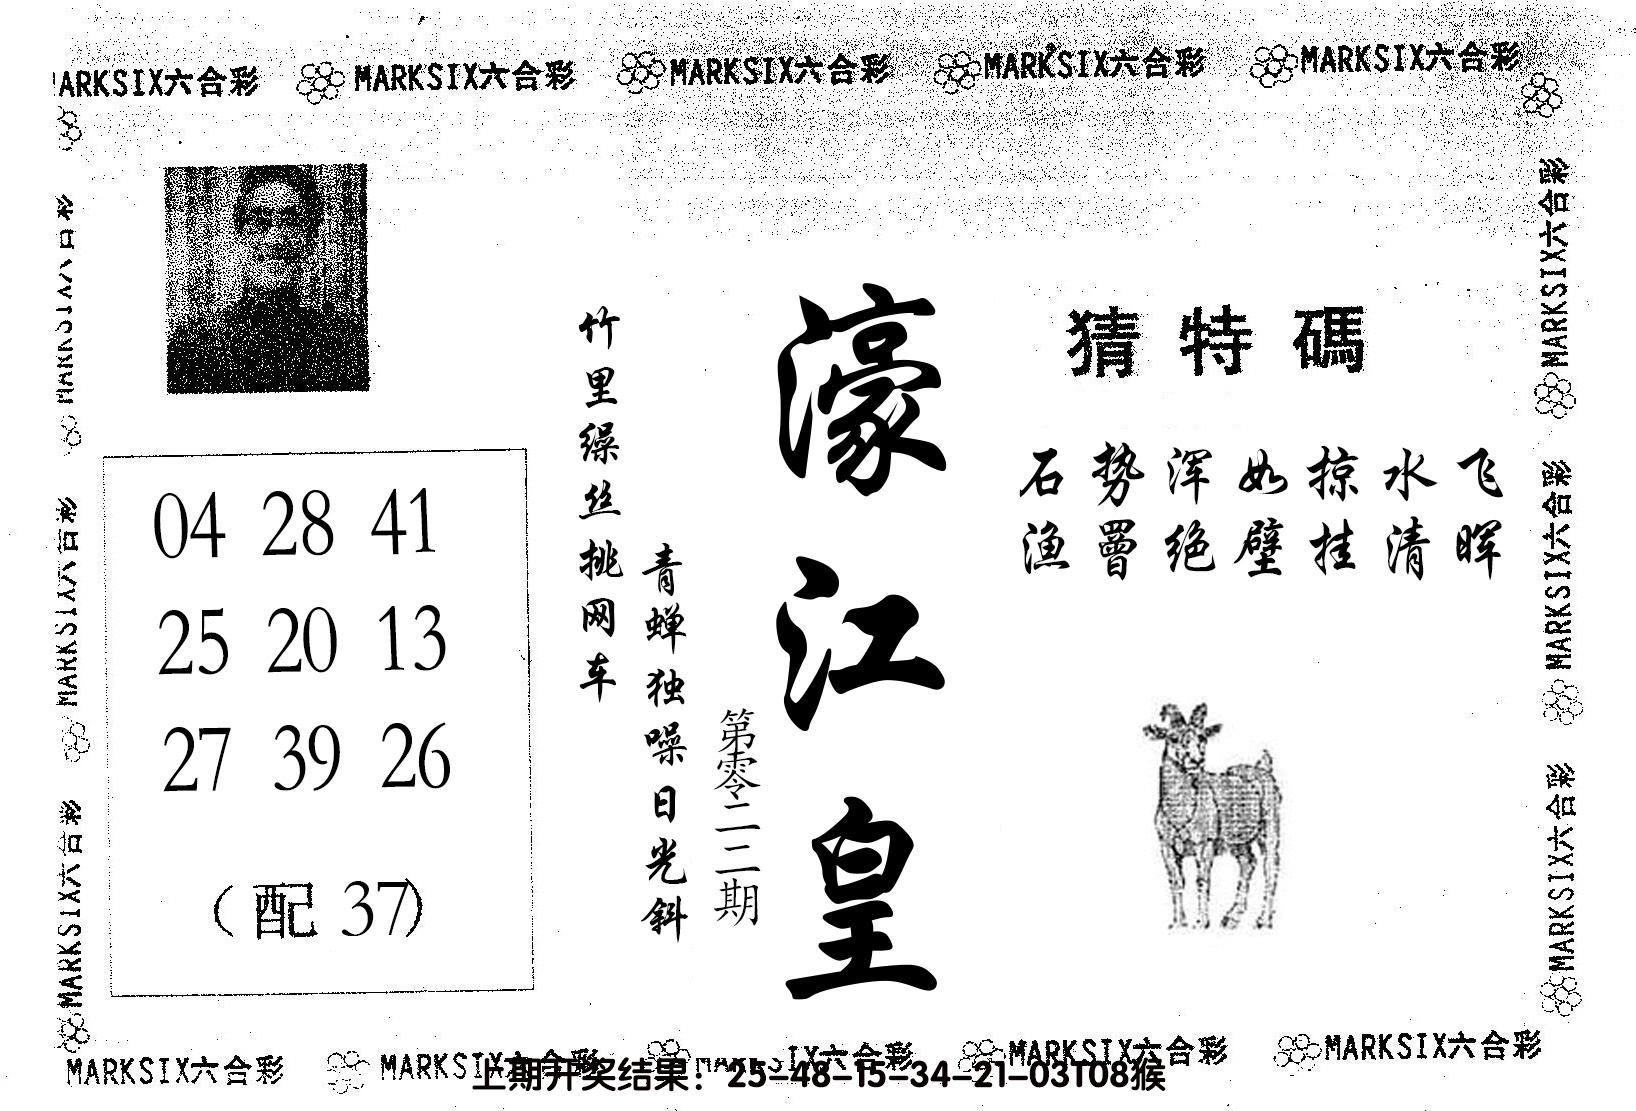 ARKSIX六合彩 MARKSIX六合彩 MARKSIX六合彩 MARKSIX六合彩 MARKSIX六合彩
MARKSIX六合彩
MARKSIX六合彩
MARKSIX六合彩
MARKSIX六合彩
MARKSIX六合彩
MARKSIX六合彩
猜特碼
石势浑如掠水飞
渔罾绝壁挂清晖
濠江皇
第零二二期
竹里缲丝挑网车
青蝉独噪日光斜
04 28 41
25 20 13
27 39 26
（配 37）
MARKSIX六合彩 MARKSIX六合彩 MARKSIX六合彩 MARKSIX六合彩 MARKSIX六合彩
上期开奖结果：25-48-15-34-21-03T08猴